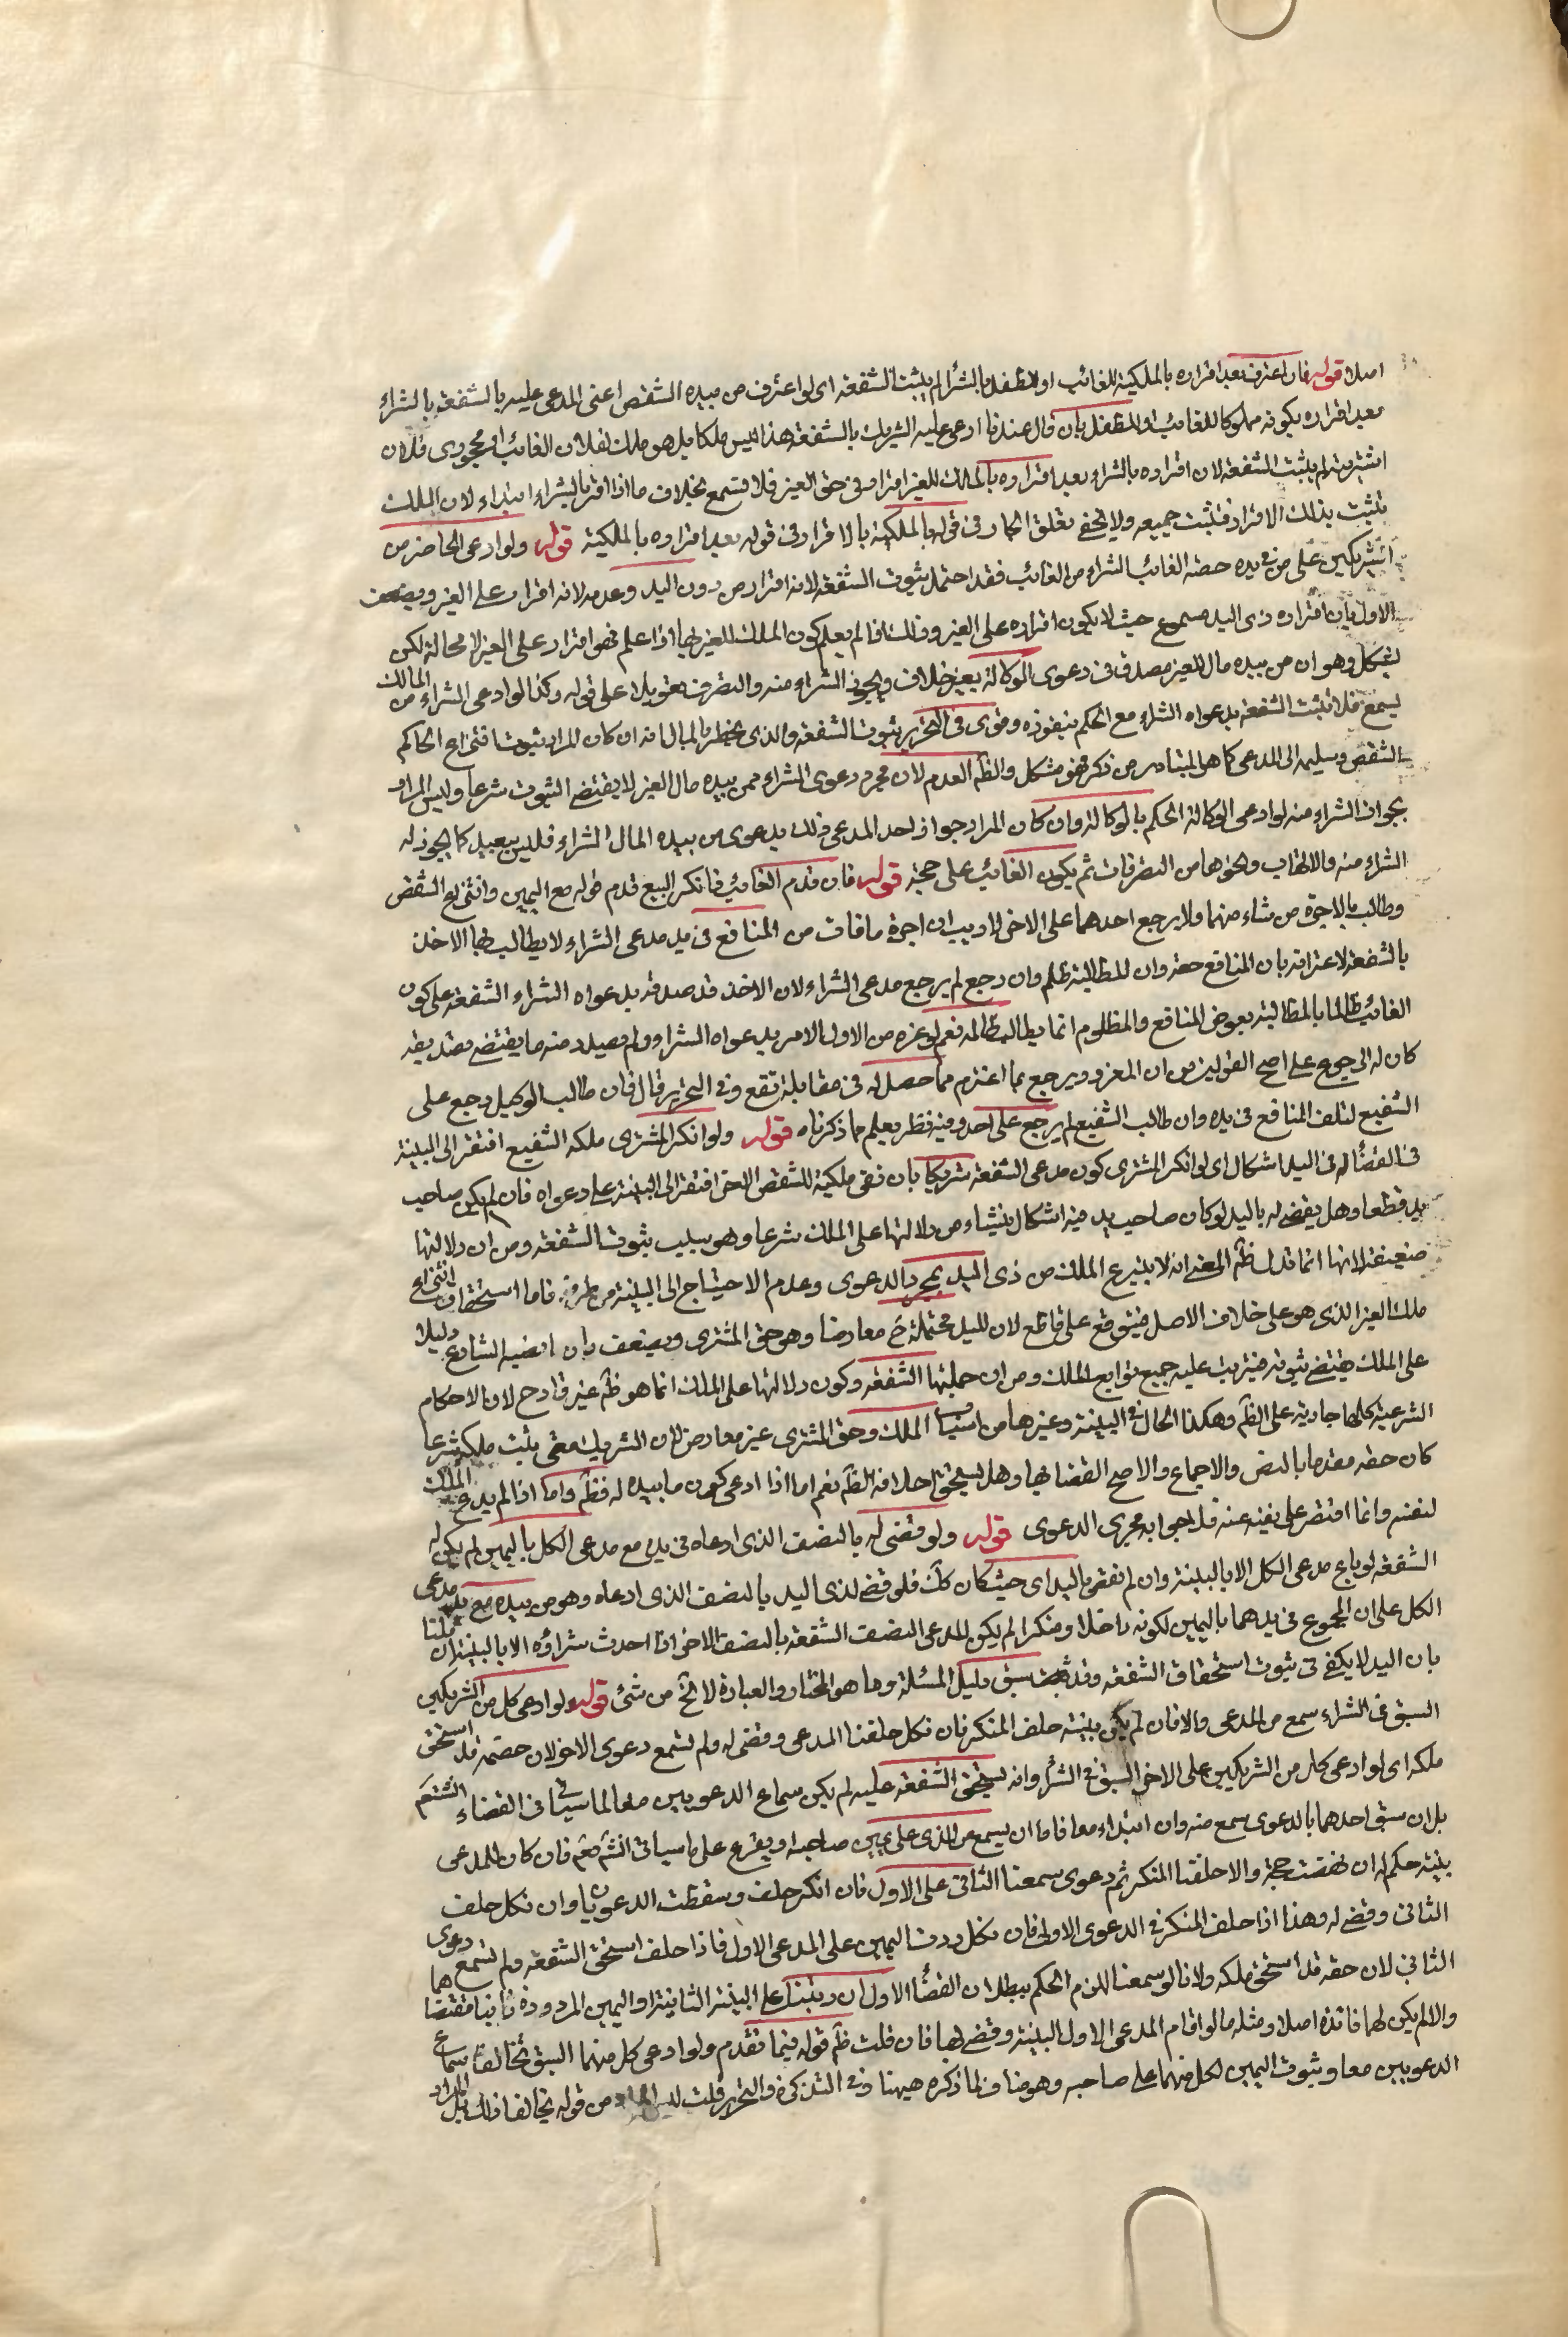 اصلا قوله فان اعترف بعد اقراره بالملكية للغائب او للطفل بالشراء لم يثبت الشفعة اى لو اعترف من بيده الشقص اعنى المدعى عليه بالشفعة بالشراء
بعد اقراره بكونه مملوكا للغائب او للطفل بان قال عندما ادعى عليه الشريك بالشفعة هذا ليس ملكا بل هو ملك لفلان الغائب او محجورى فلان
اشتريته لم يثبت الشفعة لان اقراره بالشراء بعد اقراره بالملك للغير اقرار فى حق الغير فلا تسمع بخلاف ما اذا اقر بالشراء ابتداء لان الملك
تثبت بذلك الاقرار فتثبت جميعه ولا يخفى تعلق الجار فى قوله بالملكية بالاقرار فى قوله بعد اقراره بالملكية قوله ولو ادعى الحاضر من
الشريكين على من فى يده حصة الغائب الشراء من الغائب فقد احتمل ثبوت الشفعة لانه اقرار من دون اليد وعدمه لانه اقرار على الغير ويضعف
الاول بان اقراره ذى اليد مسموع حيث لا يكون اقراره على الغير وذلك اذا لم يعلم كون الملك للغير فاما اذا علم فهو اقرار على الغير لا محالة لكن
يشكل وهو ان من بيده مال للغير مصدق فى دعوى الوكالة بغير خلاف ويجوز الشراء منه والتصرف تعويلا على قوله وكذا لو ادعى الشراء من المالك
يسمع فلا تثبت الشفعة بدعواه الشراء مع الحكم بنفوذه وقوى فى التحرير ثبوت الشفعة والذى يخطر بالبال انه ان كان المراد بثبوتها انتزاع الحاكم
الشقص وتسليمه الى المدعى كما هو المتبادر من ذكر فهو مشكل والظ العدم لان مجرد دعوى الشراء ممن بيده مال الغير لا يقتضى الثبوت شرعا وليس المراد
بجواز الشراء منه لو ادعى الوكالة الحكم بالوكالة وان كان المراد جواز اخذ المدعى ذلك بدعوى من بيده المال الشراء فليس ببعيد كما يجوز له
الشراء منه والاتهاب ونحوهما من التصرفات ثم يكون الغائب على حجته قوله فان قدم الغائب فانكر البيع قدم قوله مع اليمين وانتزع الشقص
وطالب بالاجرة من شاء منهما ولا يرجع احدهما على الاخر لا ريب ان اجرة ما فات من المنافع فى يد مدعى الشراء لا يطالب بها الاخذ
بالشفعة لاعترافه بان المنافع حقه وان للمطالبة ظلم وان رجع لم يرجع مدعى الشراء لان الاخذ قد صدقه بدعواه الشراء الشفعة على كون
الغائب ظالما بالمطالبة بعوض المنافع والمظلوم انما يطالب ظالمه نعم لو غره من الاول الامر بدعواه الشراء ولم يصدر منه ما يقتضى تصديقه
كان له الرجوع على اصح القولين من ان المغرور يرجع بما اغترم مما حصل له فى مقابلة نفع وفى التحرير قال فان طالب الوكيل رجع على
الشفيع لتلف المنافع فى يده وان طالب الشفيع لم يرجع على احد وفيه نظر يعلم مما ذكرناه قوله ولو انكر المشترى ملكه الشفيع افتقر الى البينة
فى القضاء له فى اليد اشكال اى لو انكر المشترى كون مدعى الشفعة شريكا بان نفى ملكيته للشقص الاخر افتقر الى البينة على دعواه فان لم يكن صاحب
يد قطعا وهل يقضى له باليد لو كان صاحب يد فيه اشكال ينشاء من دلالتها على الملك شرعا وهو سبب ثبوت الشفعة ومن ان دلالتها
ضعيفة لانها انما تدل ظ المعنى انه لا ينتزع الملك من ذى اليد بمجرد الدعوى وعدم الاحتياج الى البينة من طرفه فاما استحقاق انتزاع
ملك الغير الذى هو على خلاف الاصل فيتوقع على قاطع لان لليد محتملة مع معارضا وهو حق المشترى ويضعف بان انضيه الشارع دليلا
على الملك يقتضى ثبوته فيترتب عليه جميع توابع الملك ومن ان جملتها الشفعة وكون دلالتها على الملك انما هو ظ غير قادح لان الاحكام
الشرعية كلها جارية على الظ وهكذا الحال فى البينة وغيرها من اسباب الملك وحق المشترى غير معارض لان الشريك متى يثبت ملكه شرعا
كان حقه مقدما بالنص والاجماع والاصح القضا بها وهل يستحق احلافه الظ نعم اما اذا ادعى كون ما بيده له فظ واما اذا لم يدع الملك
لنفسه وانما اقتصر على نفيه عنه فلجوابه مجرى الدعوى قوله ولو قضى له بالنصف الذى ادعاه فى يده مع مدعى الكل باليمين لم يكن له
الشفعة لو باع مدعى الكل الا بالبينة وان لم نقض باليد اى حيث كان كك فلو قضى لذى اليد بالنصف الذى ادعاه وهو من بيده مع يد مدعى
الكل على ان المجموع فى يدهما باليمين لكونه داخلا ومنكرا لم يكن للمدعى النصف الشفعة بالنصف الاخر اذا احدث شراؤه الا بالبينة ان قلنا
بان اليد لا يكفى فى ثبوت استحقاق الشفعة وقد سبق دليل المسئلة وما هو المختار والعبارة لا تخ من شئ قوله ولو ادعى كل من الشريكين
السبق فى الشراء سمع من المدعى والا فان لم يكن بينة حلف المنكر فان نكل حلفنا المدعى وقضى له ولم تسمع دعوى الاخر لان حصته قد استحق
ملكه اى لو ادعى كل من الشريكين على الاخر السبق فى الشراء وانه يستحق الشفعة عليه لم يكن سماع الدعويين معا لما سياتى فى القضاء انشاءلله تعالى
بل ان سبق احدهما بالدعوى سمع منه وان ابتداء معا فاما ان يسمع من الذى على يمين صاحبه او يقرع على ما سياتى انش تعم فان كان للمدعى
بينة حكم له ان نهضت حجة والا حلفنا المنكر ثم دعوى سمعنا الثانى على الاول فان انكر حلف وسقطت الدعويان وان نكل حلف
الثانى وقضى له وهذا اذا حلف المنكر فى الدعوى الاولى فان نكل رددت اليمين على المدعى الاول فاذا حلف استحق الشفعة ولم تسمع دعوى
الثانى لان حقه قد استحق ملكه ولانا لو سمعنا للزم الحكم ببطلان القضاء الاول ان رتبنا على البينة الثانية او اليمين المردودة ثانيا مقتضاهما
والا لم يكن لهما فائدة اصلا ومثله ما لو اقام المدعى الاول البينة وقضى بها فان قلت ظ قوله فيما تقدم ولو ادعى كل منهما السبق تحالفا سماع
الدعويين معا وثبوت اليمين لكل منهما على صاحبه وهو مناف لما ذكره هيهنا وفى التذكرة والتحرير قلت ليس المراد من قوله تحالفا ذلك بل المراد